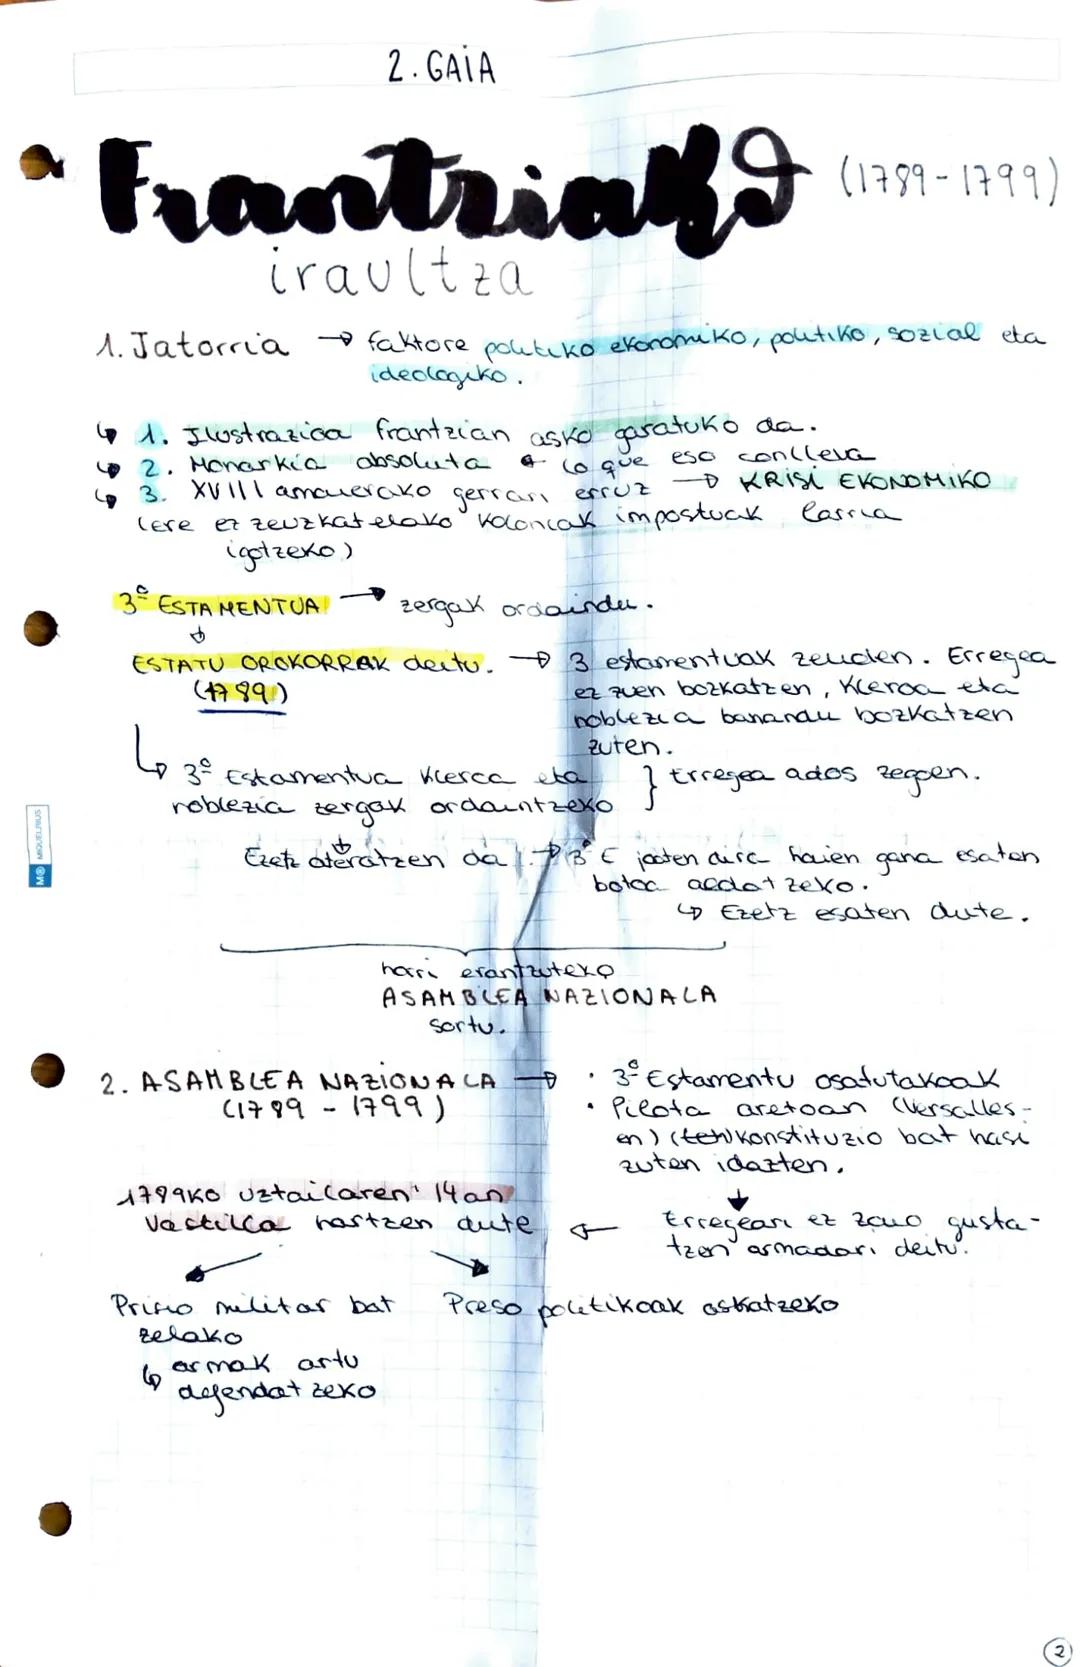 2. GAIA
Frantziako (1789-1799)
iraultza
1. Jatorria → faktore politiko ekonomiko, politiko, sozial eta
ideologiko.
↳ 1. Ilustrazioa frantzian asko garatuko da.
↳ 2. Monarkia absoluta ← lo que eso conlleva
↳ 3. XVIII amaierako gerran erruz → KRISI EKONOMIKO
(ere ez zeuzkatelako koloniak impostuak larria
igotzeko)
3º ESTAMENTUA → zergak ordaindu.
↓
ESTATU OROKORRAK deitu. → 3 estamentuak zeuden. Erregea
(1789) ez zuen bozkatzen, Kleroa eta
noblezia banandu bozkatzen
zuten.
↳ 3º Estamentua kleroa eta } Erregea ados zegoen.
noblezia zergak ordaintzeko
↓
Ezetz ateratzen da. → 3º E joaten dira haien gana esaten
botoa aldatzeko.
↳ Ezetz esaten dute.
harri erantzuteko
ASAMBLEA NAZIONALA
sortu.
2. ASAMBLEA NAZIONALA → · 3º Estamentu osatutakoak
(1789 - 1799) · Pilota aretoan (Versalles-
en) konstituzio bat hasi
zuten idazten.
↓
1789ko uztailaren 14an
Vastilla hartzen dute ← Erregeari ez zaio gusta-
tzen armadari deitu.
Prisio militar bat Preso politikoak askatzeko
zelako
↳ armak artu
defendatzeko
MIQUELRIUS
2